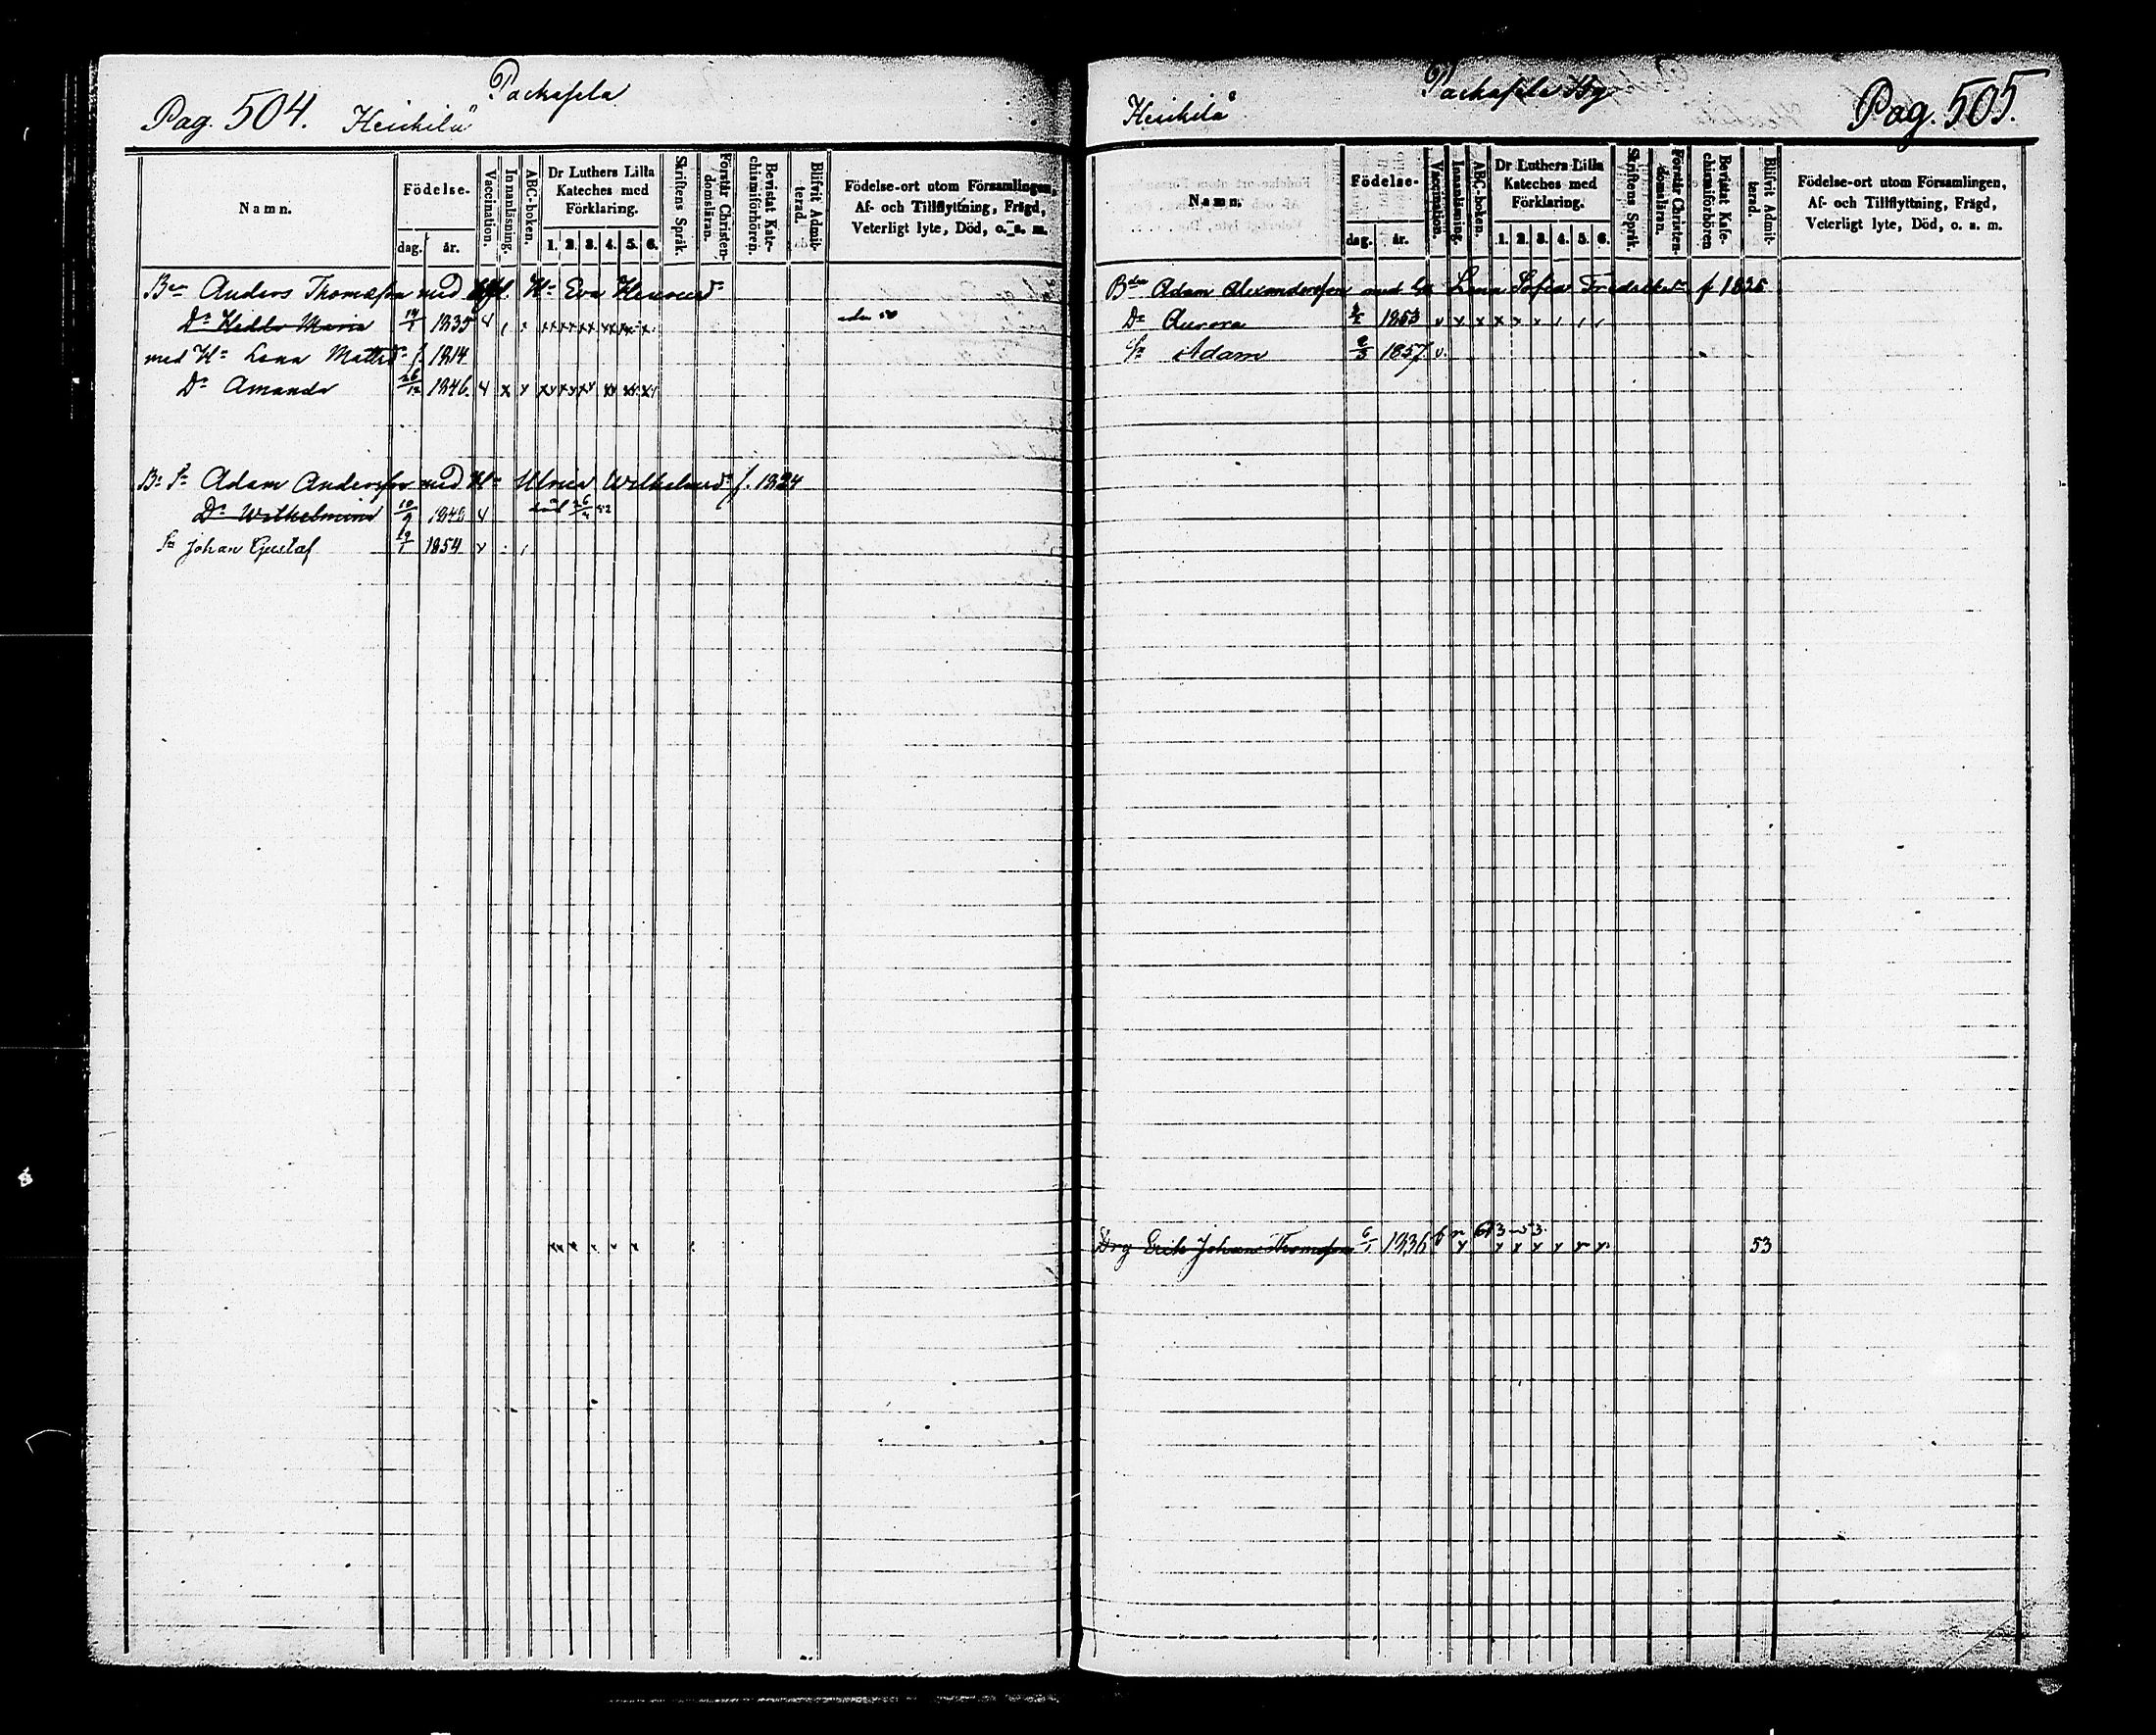 Pag. 504. Heickilä Packapela
Namn.
Födelse-
dag. år.
Vaccination.
Innanläsning.
ABC-boken.
Dr Luthers Lilla Kateches med Förklaring.
1. 2. 3. 4. 5. 6.
Skriftens Språk.
Förstår Christendomsläran.
Bevistat Katechismiförhören.
Blifvit Admitterad.
Födelse-ort utom Församlingen, Af- och Tillflyttning, Frägd, Veterligt lyte, Död, o. s. m.
Anders Thomasson med H:u Eva Henricsd:r
D:r Hedda Maria 14/1 1835
med H:u Lena Mattsd:r f. 1814
D:r Amanda 26/12 1846.
B: S:n Adam Andersson med H:u Ulrica Wilhelmsd:r f. 1824
D:r Wilhelmina 10/9 1848 död 26/4 52
S:n Johan Gustaf 19/1 1854
Heickilä Packapela By Pag. 505.
Namn.
Födelse-
dag. år.
Vaccination.
Innanläsning.
ABC-boken.
Dr Luthers Lilla Kateches med Förklaring.
1. 2. 3. 4. 5. 6.
Skriftens Språk.
Förstår Christendomsläran.
Bevistat Katechismiförhören
Blifvit Admitterad.
Födelse-ort utom Församlingen, Af- och Tillflyttning, Frägd, Veterligt lyte, Död, o. s. m.
Adam Alexandersson med Lena Sofia f 1825
D:r Aurora 1853
S:n Adam 2/3 1857
Drg Erik Johan Thomasson 6/1 1836 53